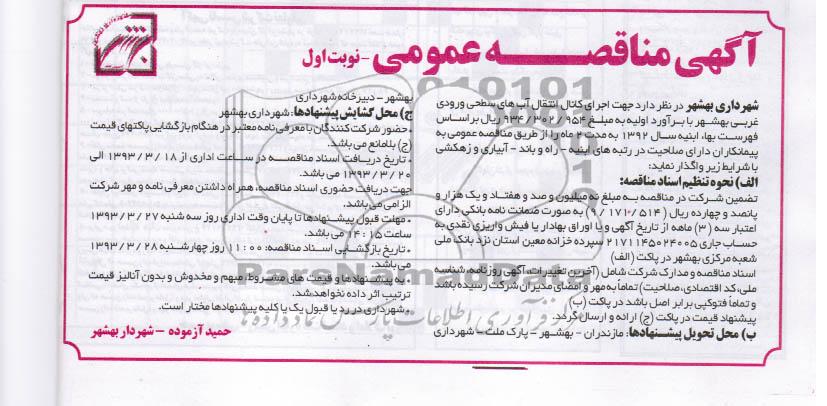 آگهی مناقصه عمومی - نوبت اول
شهرداری بهشهر در نظر دارد جهت اجرای کانال انتقال آب های سطحی ورودی
غربی بهشهر با برآورد اولیه به مبلغ ۹۳۴/۳۰۲/۹۵۴ ریال بر اساس
فهرست بها، ابنیه سال ۱۳۹۲ به مدت ۲ ماه را از طریق مناقصه عمومی به
پیمانکاران دارای صلاحیت در رتبه های ابنیه - راه و باند - آبیاری و زهکشی
با شرایط زیر واگذار نماید:
الف) نحوه تنظیم اسناد مناقصه:
تضمین شرکت در مناقصه به مبلغ نه میلیون و صد و هفتاد و یک هزار و
پانصد و چهارده ریال (۹/۱۷۱/۵۱۴) به صورت ضمانت نامه بانکی دارای
اعتبار سه (۳) ماهه از تاریخ آگهی و یا اوراق بهادار یا فیش واریزی نقدی به
حساب جاری ۲۱۷۱۱۴۵۰۲۴۰۰۵ سپرده خزانه معین استان نزد بانک ملی
شعبه مرکزی بهشهر در پاکت (الف)
اسناد مناقصه و مدارک شرکت شامل (آخرین تغییرات، آگهی روزنامه، شناسه
ملی، کد اقتصادی، صلاحیت) تماماً به مهر و امضای مدیران شرکت رسیده باشد
و تماماً فتوکپی برابر اصل باشد در پاکت (ب)
پیشنهاد قیمت در پاکت (ج) ارائه و ارسال گردد.
ب) محل تحویل پیشنهادها: مازندران - بهشهر - پارک ملت - شهرداری
بهشهر - دبیرخانه شهرداری
ج) محل گشایش پیشنهادها: شهرداری بهشهر
• حضور شرکت کنندگان با معرفی نامه معتبر در هنگام بازگشایی پاکتهای قیمت
(ج) بلامانع می باشد.
• تاریخ دریافت اسناد مناقصه در ساعت اداری از ۱۳۹۳/۳/۱۸ الی
۱۳۹۳/۳/۲۰ می باشد.
جهت دریافت حضوری اسناد مناقصه، همراه داشتن معرفی نامه و مهر شرکت
الزامی می باشد.
• مهلت قبول پیشنهادها تا پایان وقت اداری روز سه شنبه ۱۳۹۳/۳/۲۷
ساعت ۱۴:۱۵ می باشد.
• تاریخ بازگشایی اسناد مناقصه: ۱۱:۰۰ روز چهارشنبه ۱۳۹۳/۳/۲۸
می باشد.
• به پیشنهادها و قیمت های مشروط، مبهم و مخدوش و بدون آنالیز قیمت
ترتیب اثر داده نخواهد شد.
• شهرداری در رد یا قبول یک یا کلیه پیشنهادها مختار است.
حمید آزموده - شهردار بهشهر
ParsNamadData